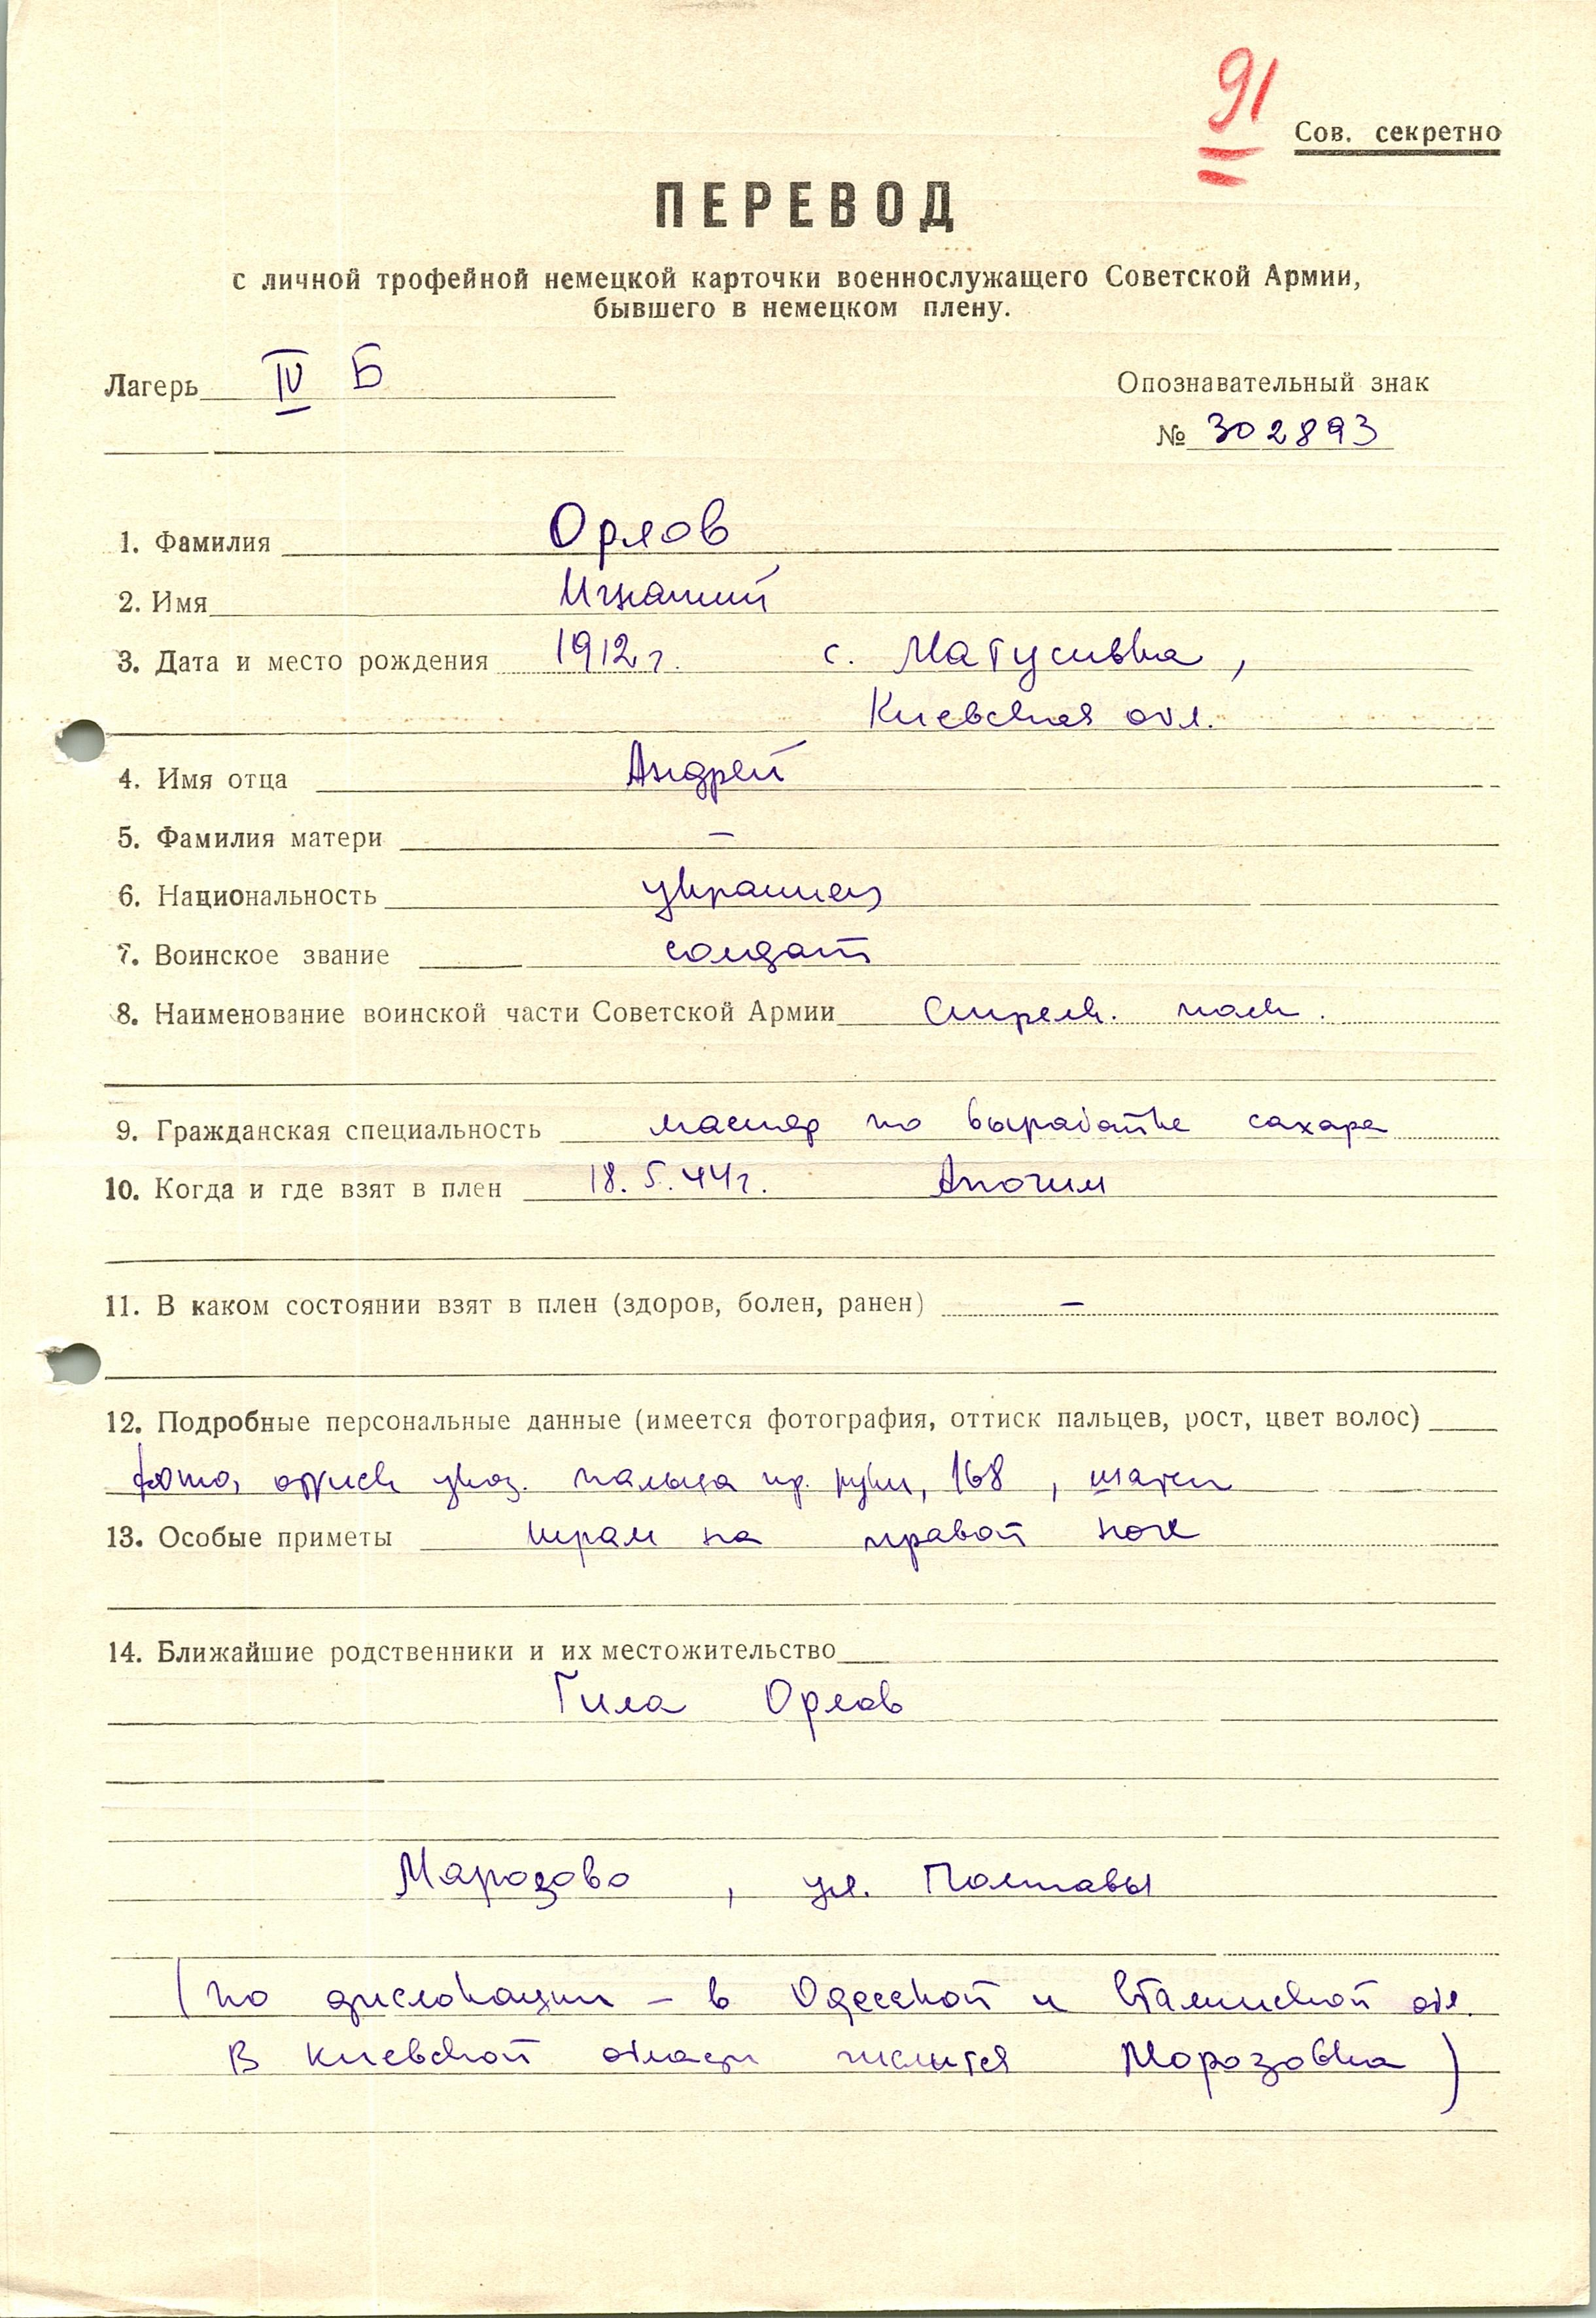 91
Сов. секретно
ПЕРЕВОД
с личной трофейной немецкой карточки военнослужащего Советской Армии,
бывшего в немецком плену.
Лагерь IV Б
Опознавательный знак
№ 302893
1. Фамилия Орлов
2. Имя Игнатий
3. Дата и место рождения 1912 г. с. Матусивка,
Киевская обл.
4. Имя отца Андрей
5. Фамилия матери —
6. Национальность украинец
7. Воинское звание солдат
8. Наименование воинской части Советской Армии Стрелк. полк.
9. Гражданская специальность мастер по выработке сахара
10. Когда и где взят в плен 18.5.44 г. Апочим
11. В каком состоянии взят в плен (здоров, болен, ранен) —
12. Подробные персональные данные (имеется фотография, оттиск пальцев, рост, цвет волос)
фото, оттиск указ. пальца пр. руки, 168, шатен
13. Особые приметы шрам на правой ноге
14. Ближайшие родственники и их местожительство
Гила Орлов
Марозово, ул. Полтавы
(по дислокации – в Одесской и Сталинской обл.
В Киевской области числится Морозовка)